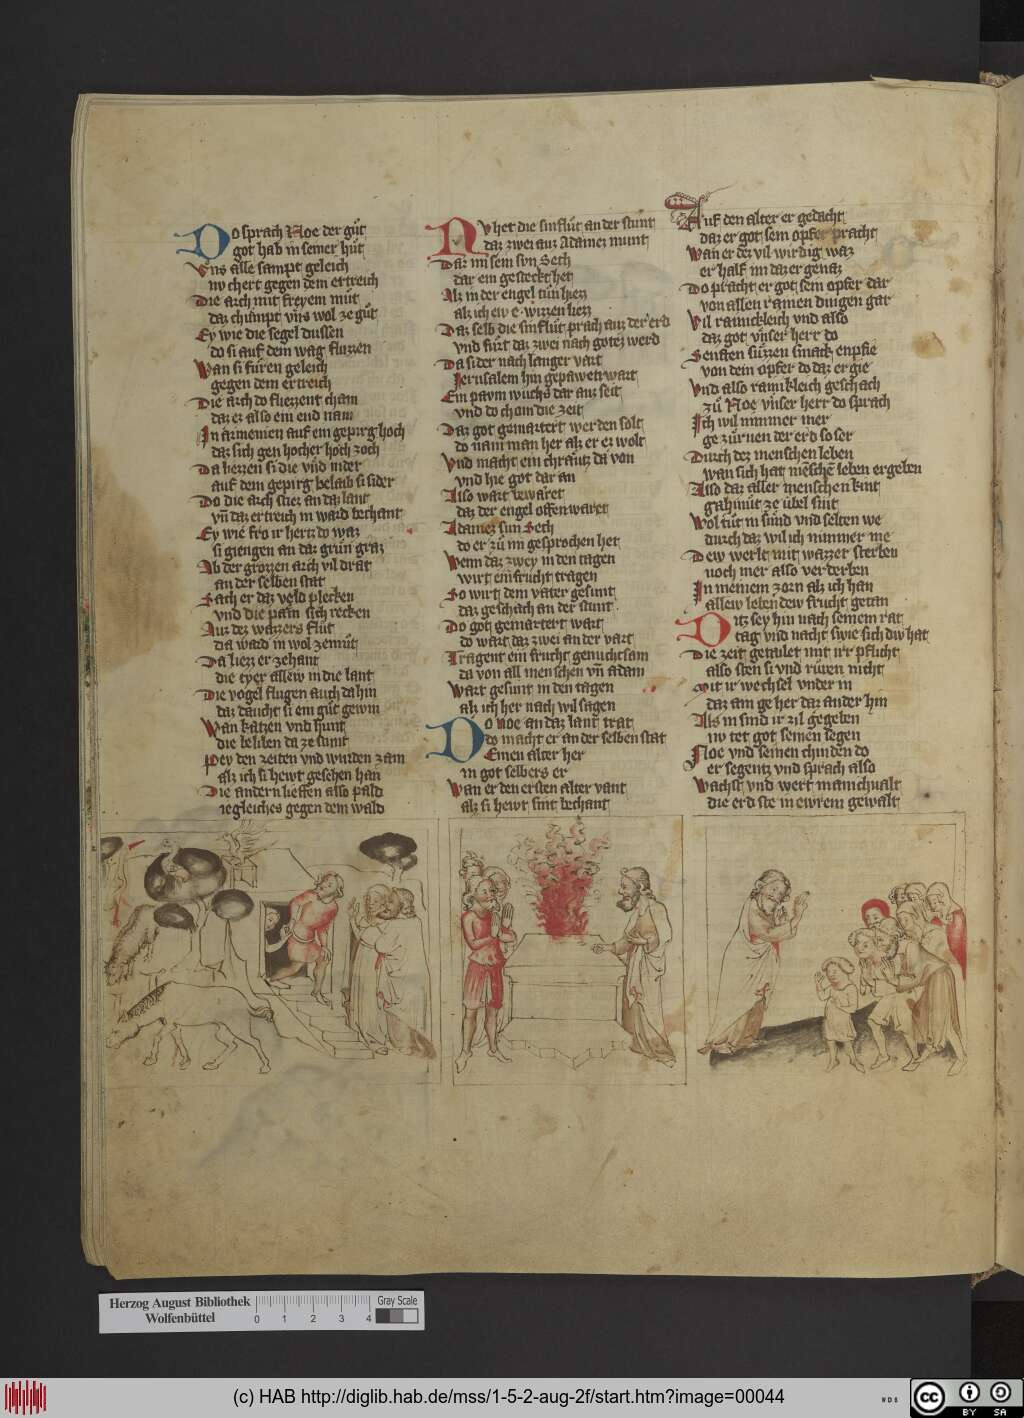 Do sprach Noe der gůt
got hab in seiner hůt
Vns alle sampt geleich
nv chert gegen dem ertreich
Die arch mit freyem můt
daz chůmpt vns wol ze gůt
Ey wie die segel dussen
do si auf dem wag fluzzen
Wan si fůren geleich
gegen dem ertreich
Die arch do fliezzent cham
daz ez also ein end nam
In armenien auf ein gepirg hoch
daz sich gen hocher hoch zoch
Da liezzen si die vnd nider
auf dem gepirg belaib si sider
Do die arch stiez an daz lant
vn daz ertreich in ward bechant
Ey wie fro ir hertz do waz
si giengen an daz grůn graz
Ab der grozzen arch vil drat
an der selben stat
Sach er daz veld plecken
vnd die pam sich recken
Auz dez wazzers flůt
da ward in wol zemůt
Da liezz er zehant
die tyer allew in die lant
Die vogel flugen auch da hin
daz daucht si ein gůt gewin
Wan katzen vnd hunt
die beliben da ze stunt
Pey den leuten vnd wurden zam
alz ich si hewt gesehen han
Die andern lieffen also pald
iegleiches gegen dem wald
Nv het die sinflůt an der stunt
daz zwei auz Adamez munt
Daz im sein svn Seth
dar ein gesteckt het
Alz in der engel tůn hiez
alz ich ew e wizzen liez
Daz selb die sinflůt prach auz der erd
vnd fůrt daz zwei nach gotez werd
Da sider nach langer vart
Jerusalem hin gepawen wart
Ein pavm wůchs dar auz seit
vnd do chom die zeit
Daz got gemartert werden solt
do nam man her alz er ez wolt
Vnd macht ein chrautz da von
vnd hie got dar an
Also wart bewaret
daz der engel offenwaret
Adamez sun Seth
do er zů im gesprochen het
Wenn daz zwey in den tagen
wirt ein frucht tragen
So wirt dein vater gesunt
daz geschach an der stunt
Do got gemartert wart
do wart daz zwei an der vart
Tragent ein frucht genuchtsam
da von all menschen vn adam
Wart gesunt in den tagen
alz ich her nach wil sagen
Do noe an daz lant trat
do macht er an der selben stat
Einen alter her
in got selbers er
Wan er den ersten alter vant
alz si hewt sint bechant
Auf den alter er gedacht
daz er got sein opfer pracht
Wan er dez vil wirdig waz
er half im daz er genaz
Do pracht er got sein opfer dar
von allen rainen dingen gar
Vil rainickleich vnd also
daz got vnser herr do
Senften sůzzen smach enpfie
von dem opfer do daz ergie
Vnd also rainikleich geschach
zů Noe vnser herr do sprach
Ich wil nimmer mer
ge zůrnen der erd so ser
Durch dez menschen leben
wan sich hat menschen leben ergeben
Also daz aller menschen kint
gahmůt ze ubel sint
Wol tůt in sůnd vnd selten we
durch daz wil ich nimmer me
Dew werlt mit wazzer sterben
noch mer also verderben
In meinem zorn alz ich han
allew lebendew frucht getan
Ditz sey hin nach seinem rat
tag vnd nacht swie sich div hat
Die zeit getailet mit irr pflicht
also sten si vnd růwen nicht
Mit ir wechsel vnder in
daz ain ge her daz ander hin
Als in sind ir zil gegeben
nv tet got seinen segen
Noe vnd seinen chinden do
er segentz vnd sprach also
Wachst vnd wert manichualt
die erd ste in ewrem gewalt
Herzog August Bibliothek
Wolfenbüttel
0 1 2 3 4
Gray Scale
(c) HAB http://diglib.hab.de/mss/1-5-2-aug-2f/start.htm?image=00044
WDB
cc BY SA